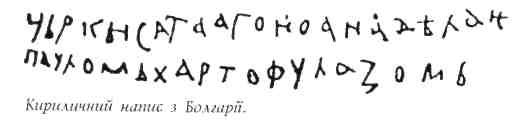 ЧЬРКЬНСАТААГОНОАНАДѢЛАН
ПАУЛОМЬХАРТОФУЛАЗОМЬ
Кириличний напис з Болгарії.